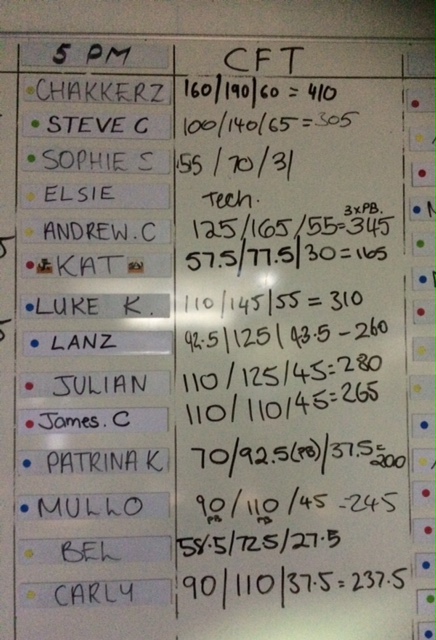 5 PM CFT
CHAKKERZ 160/190/60 = 410
STEVE C 100/140/65 = 305
SOPHIE S 55/70/31
ELSIE Tech.
3xPB.
ANDREW.C 125/165/55=345
KAT 57.5/77.5/30=165
LUKE K. 110/145/55 = 310
LANZ 92.5/125/43.5 - 260
JULIAN 110/125/45=280
James.C 110/110/45=265
PATRINA K 70/92.5(PB)/37.5=
200
MULLO 90/110/45 -245
PB PB
BEL 58.5/72.5/27.5
CARLY 90/110/37.5=237.5